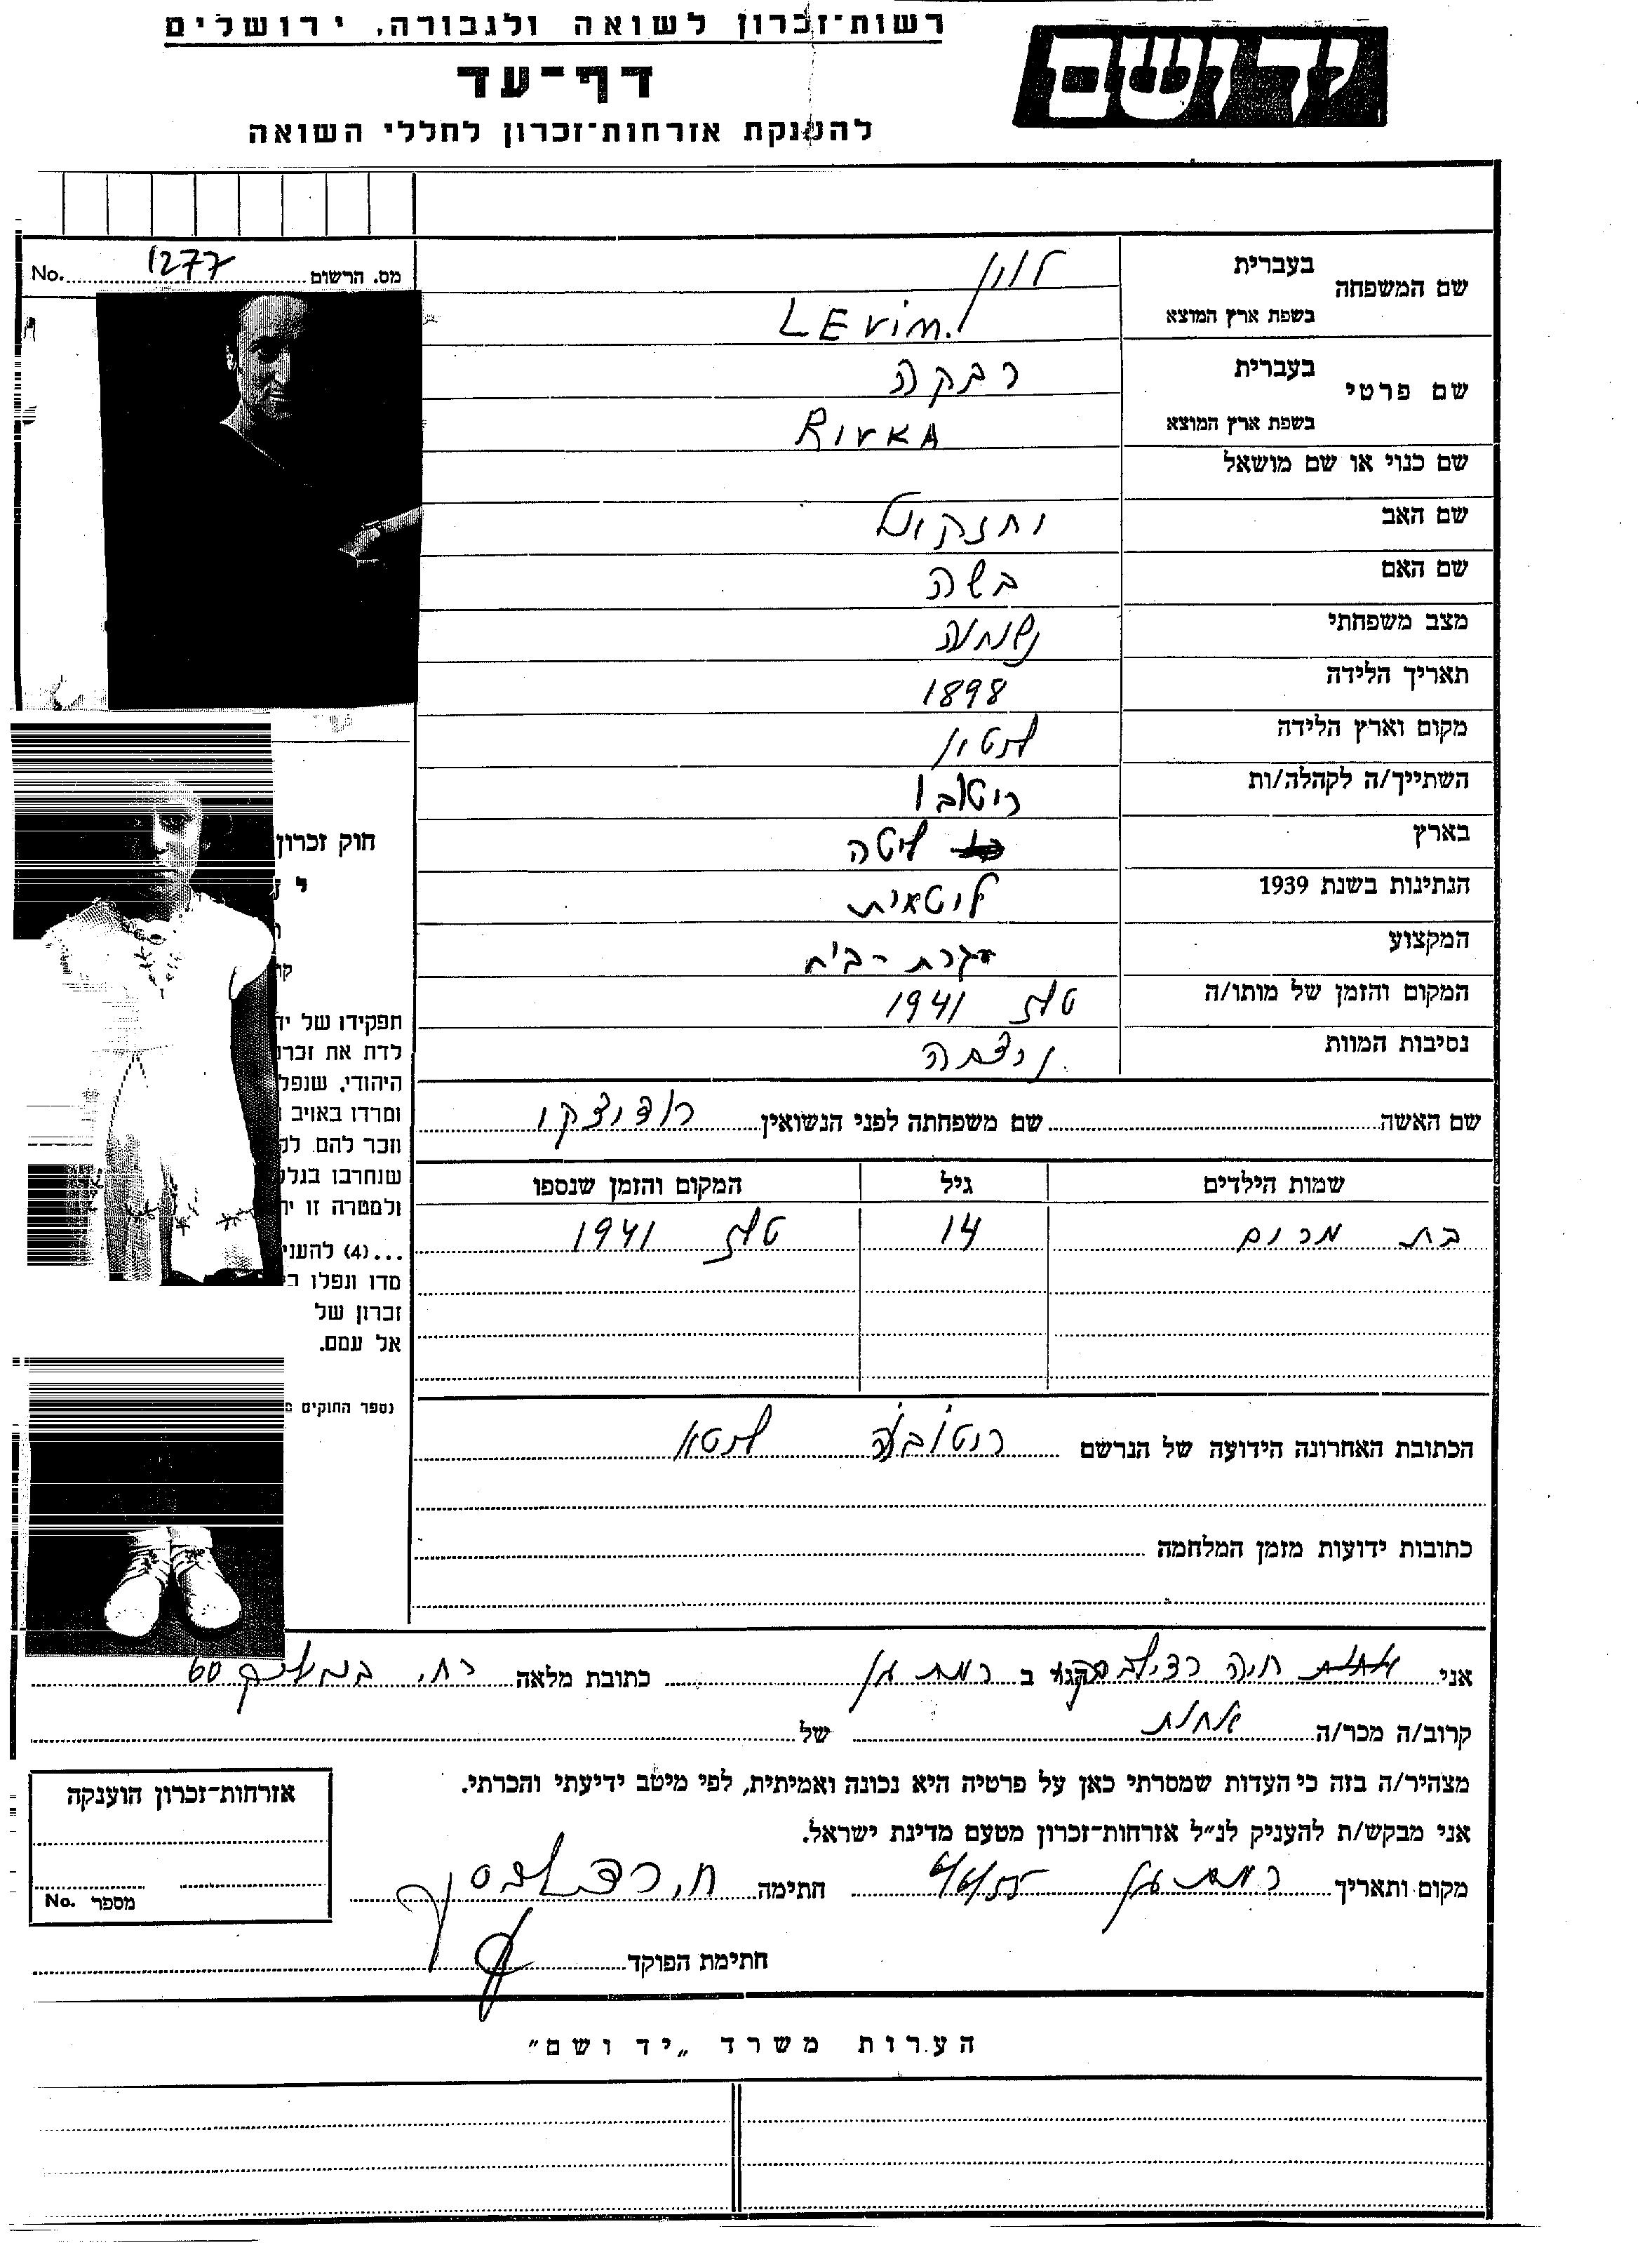 רשות־זכרון לשואה ולגבורה, ירושלים
יד ושם
דף־עד
להענקת אזרחות־זכרון לחללי השואה
מס. הרשום 1277 No.
שם המשפחה
בעברית לוין
בשפת ארץ המוצא LEvin
שם פרטי
בעברית רבקה
בשפת ארץ המוצא RIVKA
שם כנוי או שם מושאל
שם האב יחזקאל
שם האם בשה
מצב משפחתי נשואה
תאריך הלידה 1898
מקום וארץ הלידה
השתייך/ה לקהלה/ות
בארץ ליטה
הנתינות בשנת 1939 ליטאית
המקצוע עקרת-בית
המקום והזמן של מותו/ה 1941
נסיבות המוות נרצחה
שם האשה שם משפחתה לפני הנשואין
שמות הילדים גיל המקום והזמן שנספו
בת מרים 14 1941
הכתובת האחרונה הידועה של הנרשם
כתובות ידועות מזמן המלחמה
חוק זכרון
תפקידו של
לדת את
היהודי, שנפל
ומרדו באויב
וזכר להם
שנחרבו
ולמטרה זו
...(4)
מדו ונפלו
זכרון של
אל עמם.
ספר החוקים
אני חיה ב רמת גן כתובת מלאה רח' 60
קרוב/ה מכר/ה אחות של
מצהיר/ה בזה כי העדות שמסרתי כאן על פרטיה היא נכונה ואמיתית, לפי מיטב ידיעתי והכרתי.
אני מבקש/ת להעניק לנ״ל אזרחות־זכרון מטעם מדינת ישראל.
מקום ותאריך רמת גן 6/6/55 חתימה
חתימת הפוקד
אזרחות־זכרון הוענקה
מספר No.
הערות משרד „יד ושם״